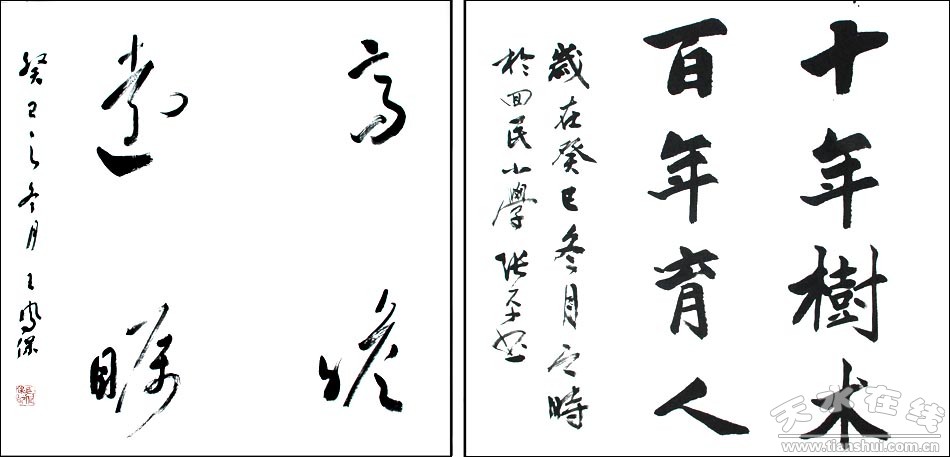 高瞻
遠矚
癸巳之冬月 王鳳保
十年樹木
百年育人
歲在癸巳冬月之時
於回民小學 張
天水在线
www.tianshui.com.cn